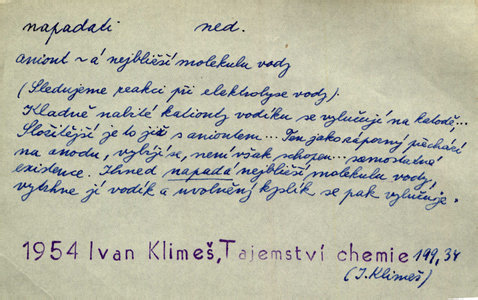 napadati ned.
aniont ~á nejbližší molekulu vody
(Sledujeme reakci při elektrolyse vody):
Kladně nabité kationty vodíku se vylučují na katodě,...
Složitější je to již s aniontem... Ten jako záporný přechází
na anodu, vybíjí se, není však schopen... samostatné
existence. Ihned napadá nejbližší molekulu vody,
vytrhne jí vodík a uvolněný kyslík se pak vylučuje.
1954 Ivan Klimeš, Tajemství chemie 199,34
(I. Klimeš)